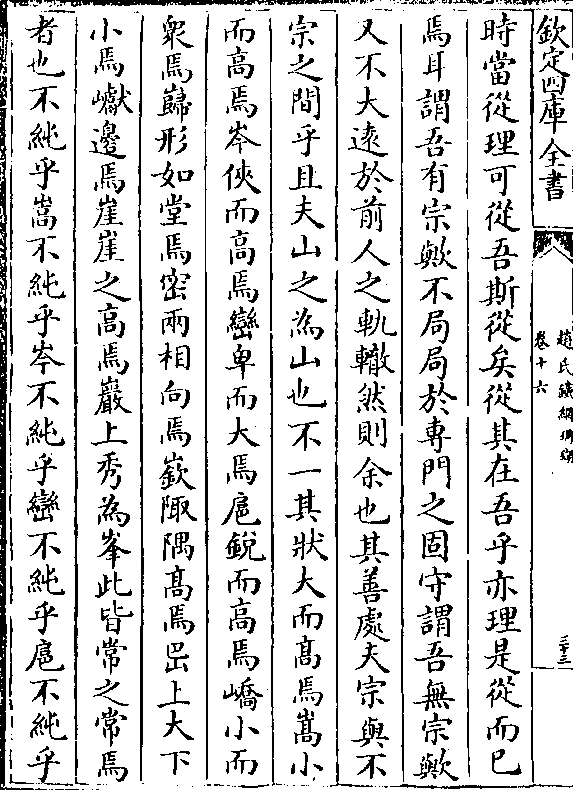 欽定四庫全書
趙氏鐵網珊瑚
卷十六
三十三
時當從理可從吾斯從矣從其在吾乎亦理是從而已
焉耳謂吾有宗歟不局局於專門之固守謂吾無宗歟
又不大遠於前人之軌轍然則余也其善處夫宗與不
宗之間乎且夫山之為山也不一其狀大而高焉嵩小
而高焉岑俠而高焉巒卑而大焉扈銳而高焉嶠小而
衆焉巋形如堂焉密兩相向焉嶔陬隅髙焉岊上大下
小焉巘邊焉崖崖之高焉巖上秀為峯此皆常之常焉
者也不純乎嵩不純乎岑不純乎巒不純乎扈不純乎